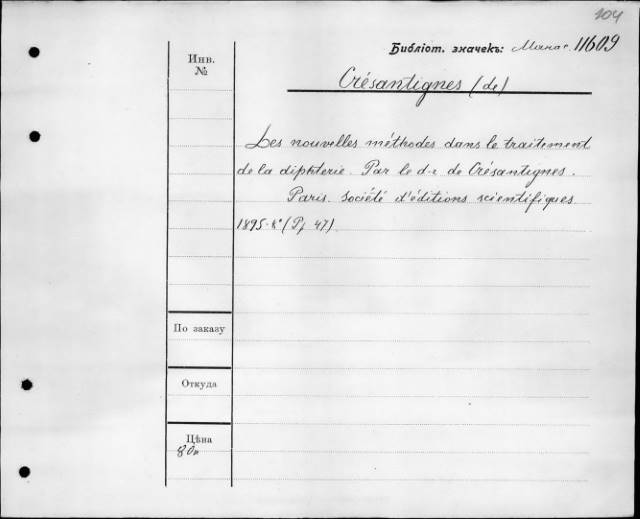 104
Библіот. значекъ: Манас. 11609
Инв.
№
Crésantignes (de)
Les nouvelles méthodes dans le traitement
de la diphterie. Par le d-r de Crésantignes.
Paris. Société d'éditions scientifiques.
1895. 8° (Pf 47).
По заказу
Откуда
Цѣна
80к